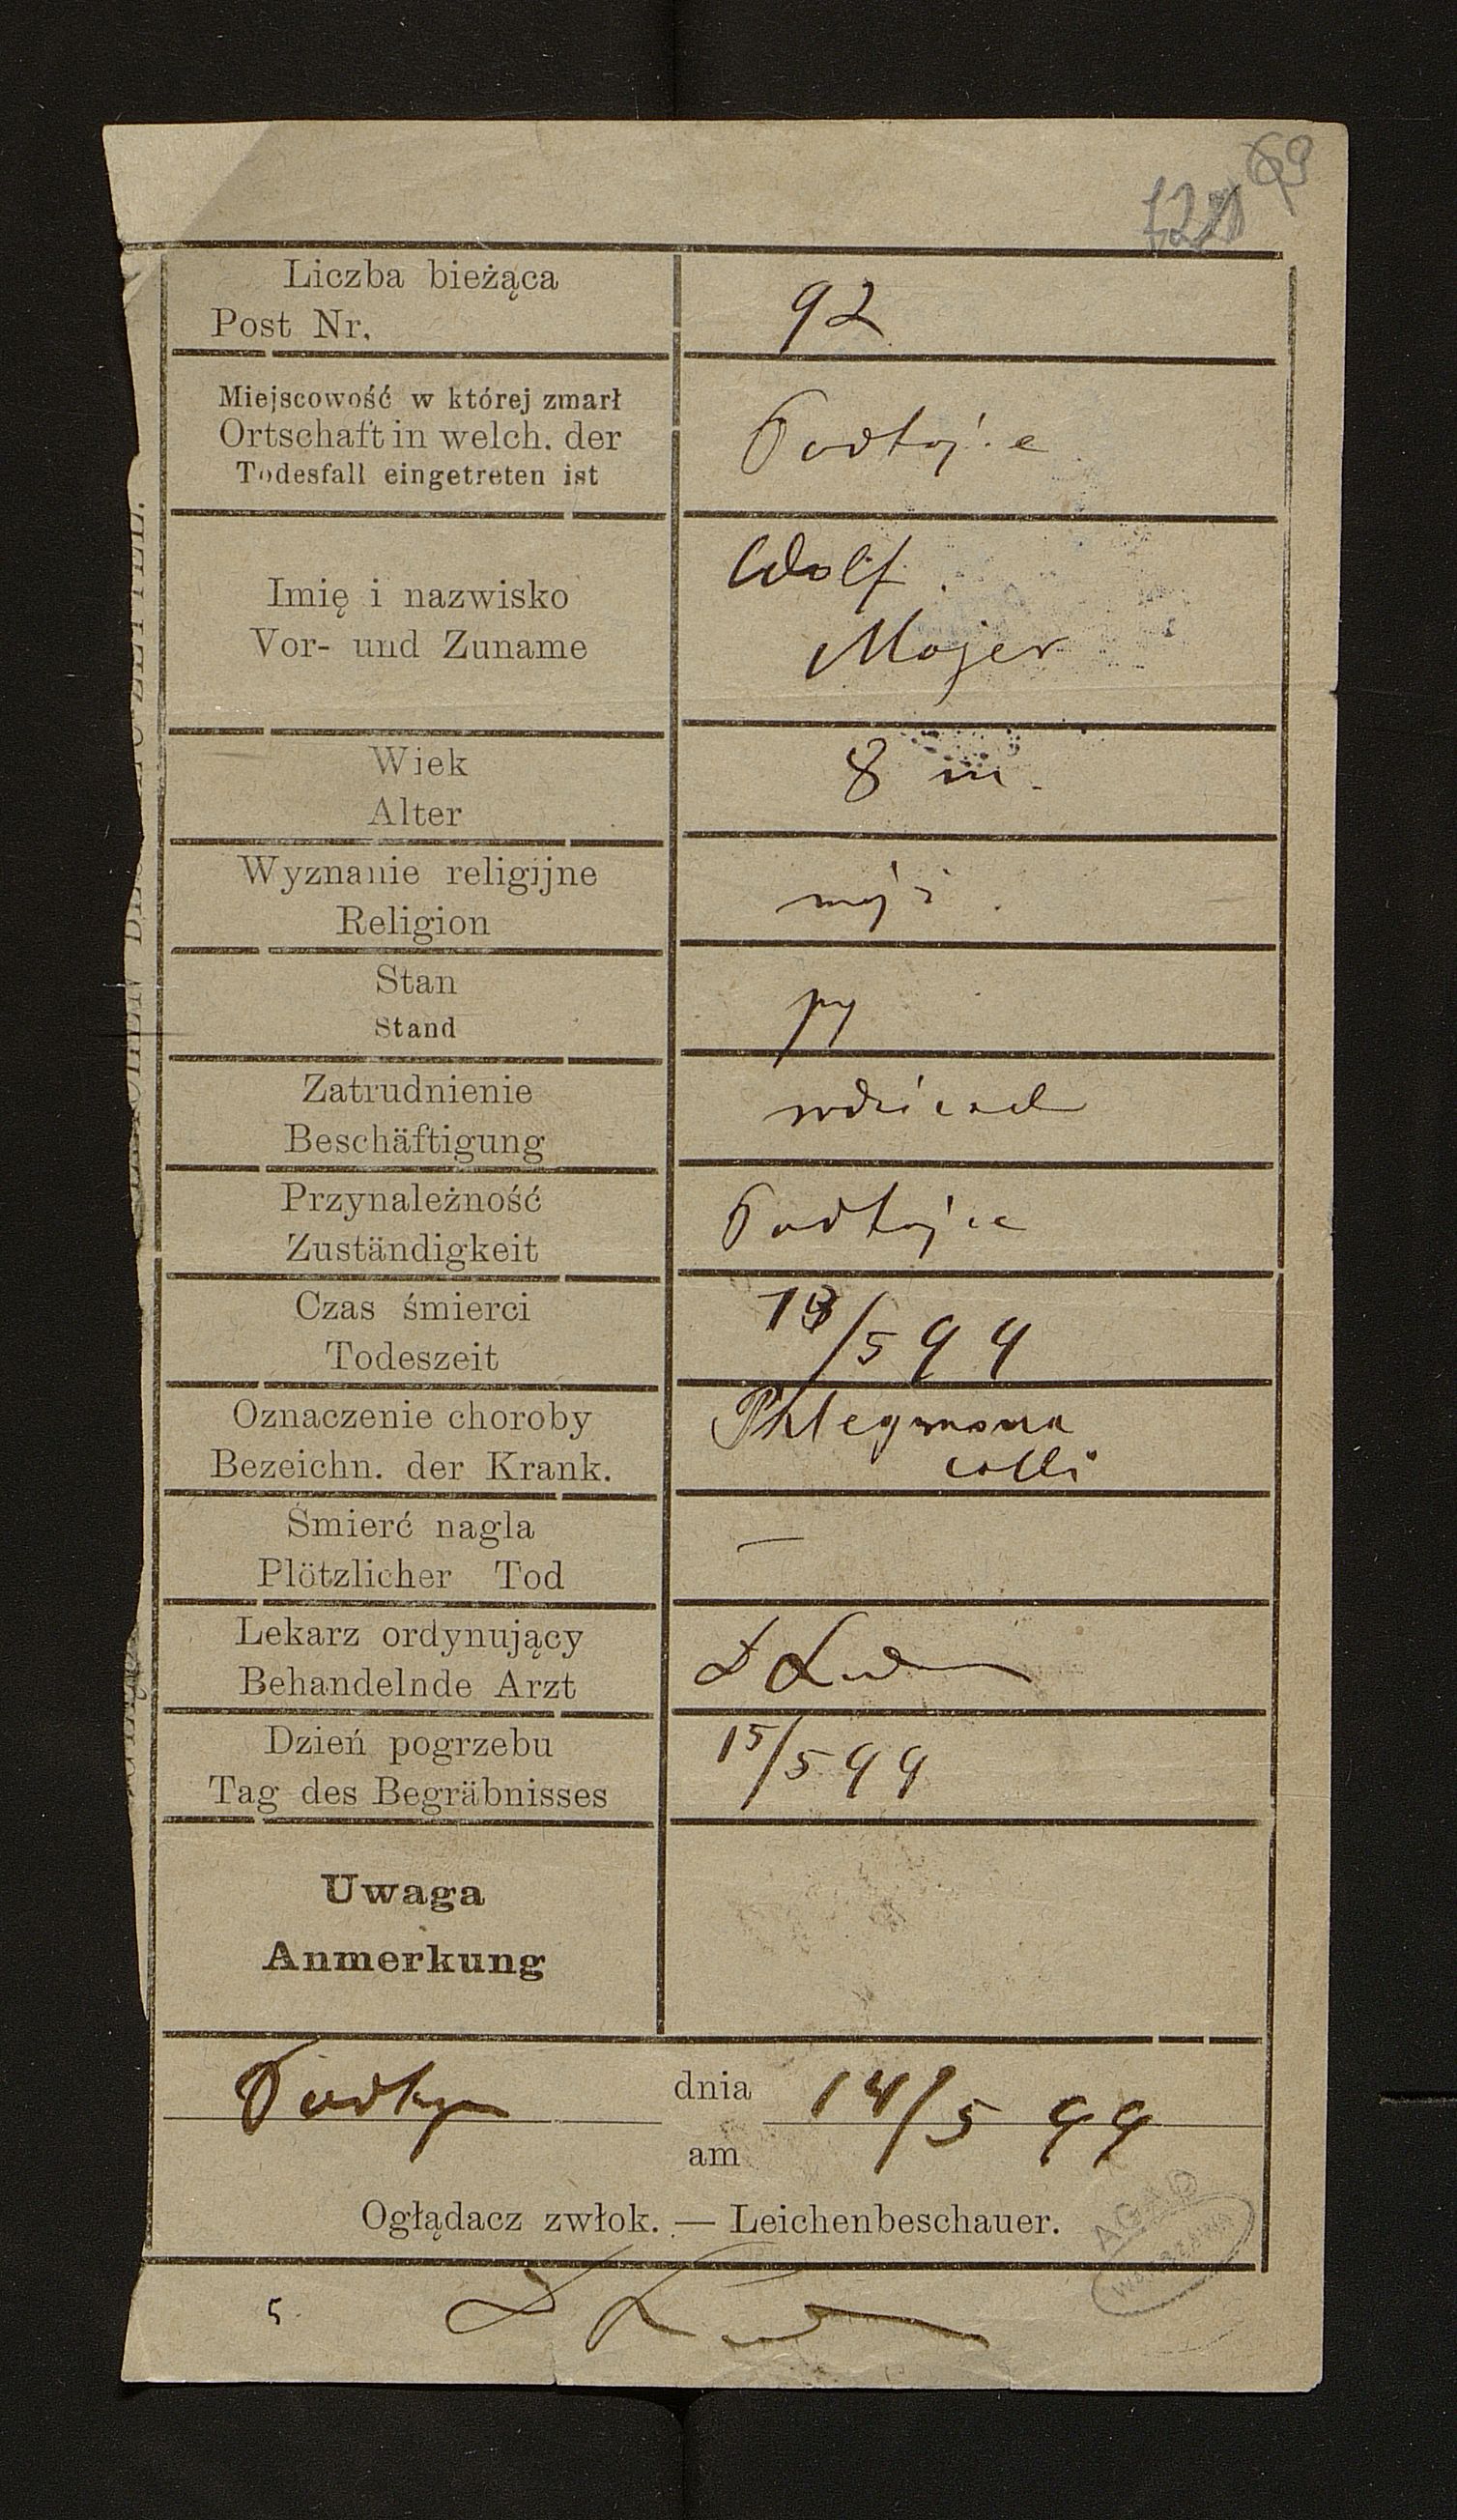 69
Liczba bieżąca
Post Nr.
92
Miejscowość w której zmarł
Ortschaft in welch. der
Todesfall eingetreten ist
Podhajce
Imię i nazwisko
Vor- und Zuname
Wolf
Majer
Wiek
Alter
8 m.
Wyznanie religijne
Religion
mojż.
Stan
Stand
Zatrudnienie
Beschäftigung
Przynależność
Zuständigkeit
Podhajce
Czas śmierci
Todeszeit
13/5 99
Oznaczenie choroby
Bezeichn. der Krank.
Phlegmona
colli
Śmierć nagla
Plötzlicher Tod
—
Lekarz ordynujący
Behandelnde Arzt
Dzień pogrzebu
Tag des Begräbnisses
15/5 99
Uwaga
Anmerkung
Podhajce dnia 14/5 99
am
Oglądacz zwłok. — Leichenbeschauer.
AGAD
WARSZAWA
5